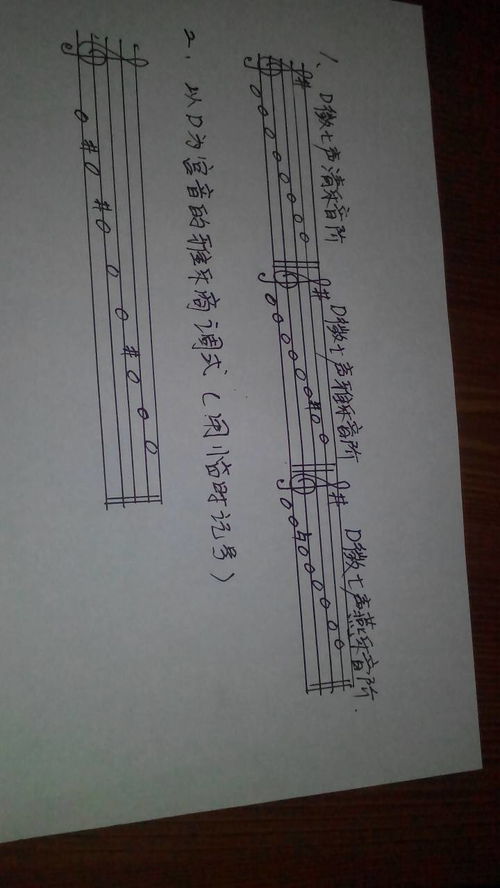 1、D徵七声清乐音阶
D徵七声雅乐音阶
D徵七声燕乐音阶.
2、以D为宫音的雅乐商调式(用临时记号)